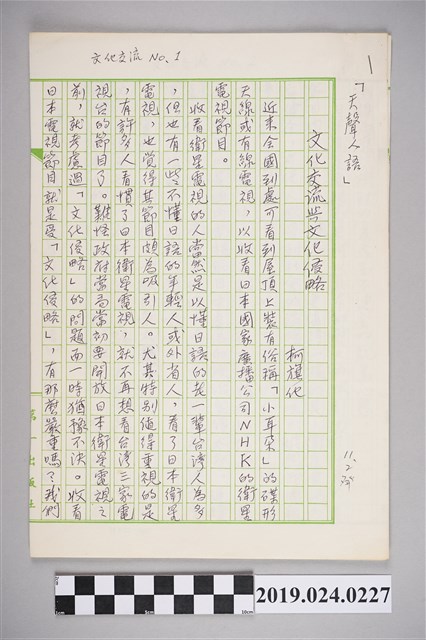 文化交流 No.1
1
「天聲人語」
文化交流與文化侵略
柯旗化
近來全國到處可看到屋頂上裝有俗稱「小耳朵」的碟形
天線或有線電視，以收看日本國家廣播公司NHK的衛星
電視節目。
收看衛星電視的人當然是以懂日語的老一輩台灣人為多
，但也有一些不懂日語的年輕人或外省人，看了日本衛星
電視，也覺得其節目頗為吸引人。尤其特別值得重視的是
，有許多人看慣了日本衛星電視，就不再想看台湾三家電
視台的節目了。難怪政府當局當初要開放日本衛星電視之
前，就考慮過「文化侵略」的問題而一時猶豫不決。收看
日本電視節目就是受「文化侵略」，有那麼嚴重嗎？我們
第一出版社
11.2
1cm
5cm
10cm
2019.024.0227